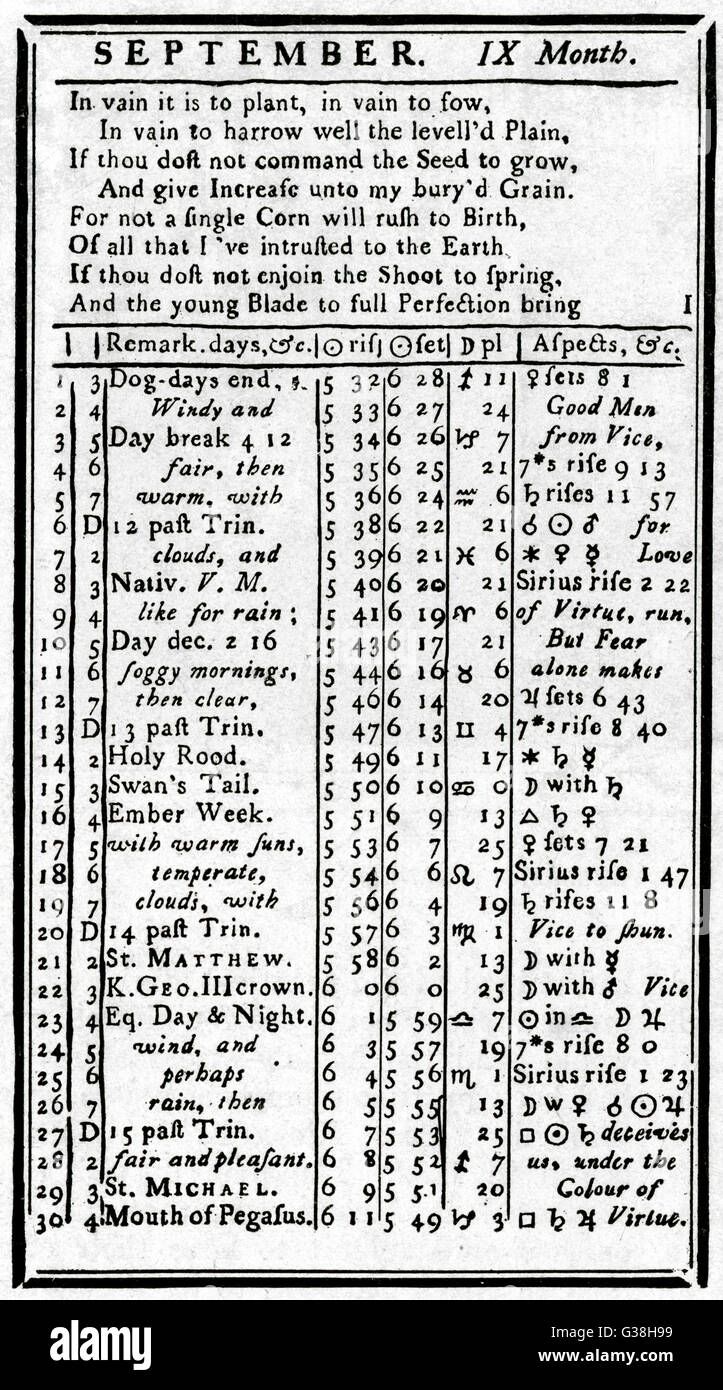 SEPTEMBER. IX Month.
In vain it is to plant, in vain to ſow,
In vain to harrow well the levell'd Plain,
If thou doſt not command the Seed to grow,
And give Increaſe unto my bury'd Grain.
For not a ſingle Corn will ruſh to Birth,
Of all that I've intruſted to the Earth
If thou doſt not enjoin the Shoot to ſpring,
And the young Blade to full Perfection bring I
Remark.days,&c. ☉ riſ ☉ ſet ☽ pl Aſpects, &c.
1 3 Dog-days end, 5 32 6 28 ♐ 11 ♀ ſets 8 1
2 4 Windy and 5 33 6 27 24 Good Men
3 5 Day break 4 12 5 34 6 26 ♑ 7 from Vice,
4 6 fair, then 5 35 6 25 21 7*s riſe 9 13
5 7 warm, with 5 36 6 24 ♒ 6 ♄ riſes 11 57
6 D 12 paſt Trin. 5 38 6 22 21 ☌ ☉ ♂ for
7 2 clouds, and 5 39 6 21 ♓ 6 ⚹ ♀ ☿ Love
8 3 Nativ. V. M. 5 40 6 20 21 Sirius riſe 2 22
9 4 like for rain; 5 41 6 19 ♈ 6 of Virtue, run,
10 5 Day dec. 2 16 5 43 6 17 21 But Fear
11 6 foggy mornings, 5 44 6 16 ♉ 6 alone makes
12 7 then clear, 5 46 6 14 20 ♃ ſets 6 43
13 D 13 paſt Trin. 5 47 6 13 ♊ 4 7*s riſe 8 40
14 2 Holy Rood. 5 49 6 11 17 ⚹ ♄ ☿
15 3 Swan's Tail. 5 50 6 10 ♋ 0 ☽ with ♄
16 4 Ember Week. 5 51 6 9 13 △ ♄ ♀
17 5 with warm ſuns, 5 53 6 7 25 ♀ ſets 7 21
18 6 temperate, 5 54 6 6 ♌ 7 Sirius riſe 1 47
19 7 clouds, with 5 56 6 4 19 ♄ riſes 11 8
20 D 14 paſt Trin. 5 57 6 3 ♍ 1 Vice to ſhun.
21 2 St. MATTHEW. 5 58 6 2 13 ☽ with ☿
22 3 K.GEO.III crown. 6 0 6 0 25 ☽ with ♂ Vice
23 4 Eq. Day & Night. 6 1 5 59 ♎ 7 ☉ in ♎ ☽ ♃
24 5 wind, and 6 3 5 57 19 7*s riſe 8 0
25 6 perhaps 6 4 5 56 ♏ 1 Sirius riſe 1 23
26 7 rain, then 6 5 5 55 13 ☽ w ♀ ☌ ☉ ♃
27 D 15 paſt Trin. 6 7 5 53 25 □ ☉ ♄ deceives
28 2 fair and pleaſant. 6 8 5 52 ♐ 7 us, under the
29 3 St. MICHAEL. 6 9 5 51 20 Colour of
30 4 Mouth of Pegaſus. 6 11 5 49 ♑ 3 □ ♄ ♃ Virtue.
alamy
Image ID: G38H99
www.alamy.com